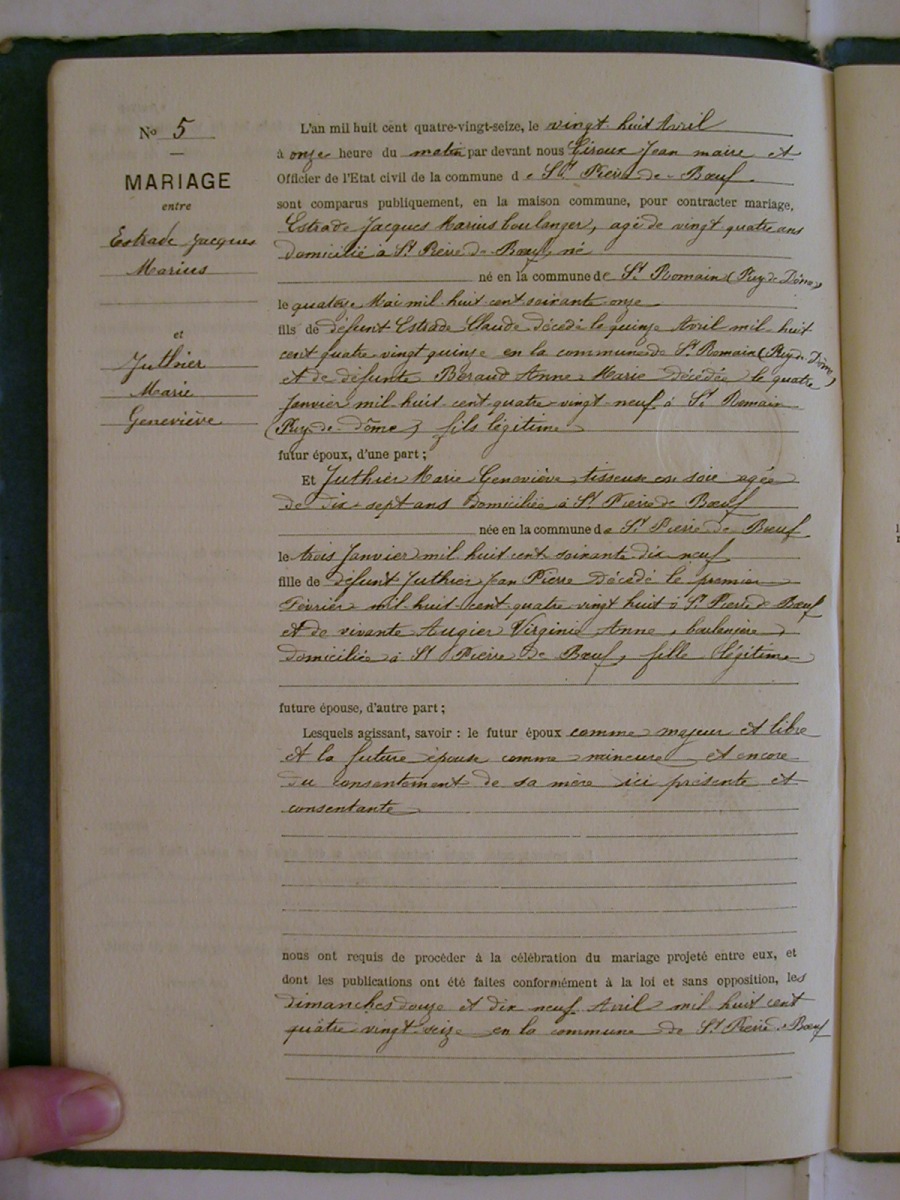 No 5
MARIAGE
entre
Estrade Jacques
Marius
et
Juthier
Marie
Geneviève
L'an mil huit cent quatre-vingt-seize, le vingt-huit Avril
à onze heure du matin par devant nous Giroux Jean maire et
Officier de l'Etat civil de la commune de St Pierre-de-Bœuf
sont comparus publiquement, en la maison commune, pour contracter mariage,
Estrade Jacques Marius boulanger, agé de vingt quatre ans
domicilié à St Pierre de Bœuf, né
né en la commune de St Romain (Puy de Dôme)
le quatorze Mai mil-huit-cent soixante onze
fils de défunt Estrade Claude décédé le quinze Avril mil-huit
cent quatre vingt quinze en la commune de St Romain (Puy de Dôme)
et de défunte Beraud Anne-Marie décédée le quatre
Janvier mil-huit-cent-quatre-vingt-neuf à St Romain
(Puy-de-Dôme) fils légitime
futur époux, d'une part ;
Et Juthier Marie Geneviève tisseuse en soie agée
de dix-sept ans domiciliée à St Pierre de Bœuf
née en la commune de St Pierre de Bœuf
le trois Janvier mil-huit-cent soixante-dix neuf
fille de défunt Juthier Jean Pierre décédé le premier
Février mil-huit-cent-quatre vingt huit à St Pierre de Bœuf
et de vivante Augier Virginie Anne, boulangère,
domiciliée à St Pierre de Bœuf, fille légitime
future épouse, d'autre part ;
Lesquels agissant, savoir : le futur époux comme majeur et libre
et la future épouse comme mineure et encore
du consentement de sa mère ici présente et
consentante
nous ont requis de procéder à la célébration du mariage projeté entre eux, et
dont les publications ont été faites conformément à la loi et sans opposition, les
dimanches douze et dix neuf Avril mil huit cent
quatre vingt-seize en la commune de St Pierre-de-Bœuf